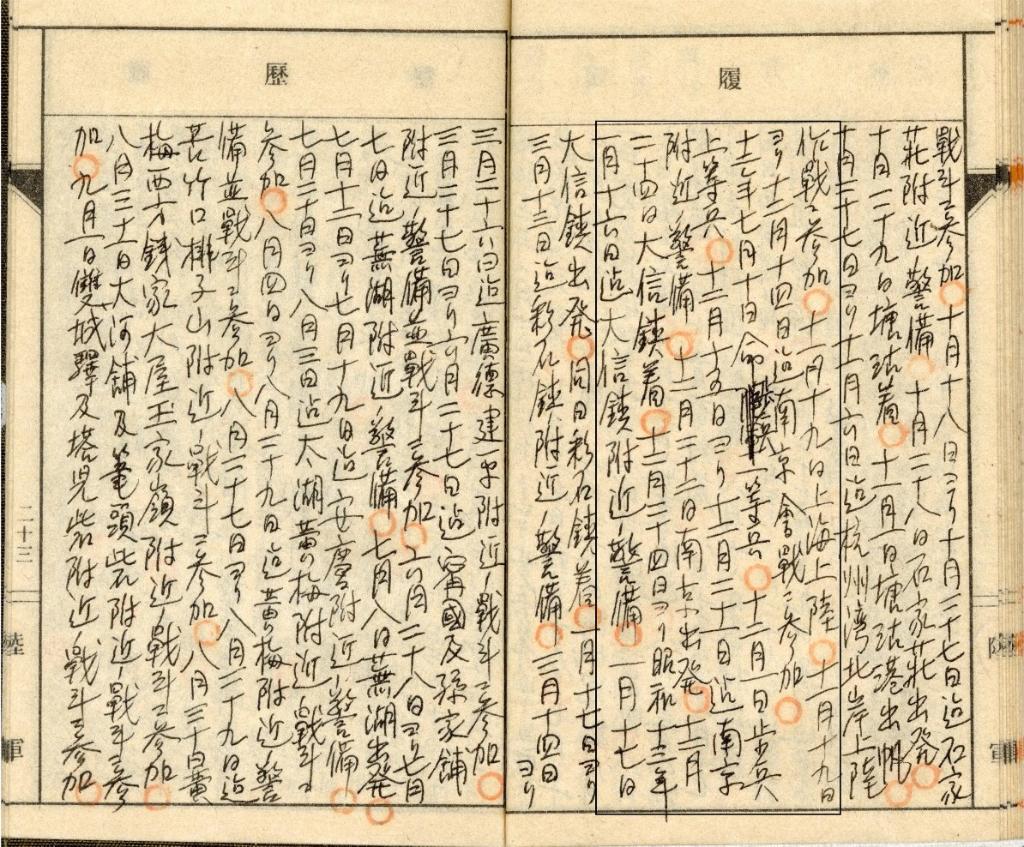 履
戰斗ニ参加 十月十八日ヨリ十月二十七日迠石家
莊附近ノ警備 十月二十八日石家莊出発
十月二十九日塘沽着 十一月一日塘沽港出帆
十月二十七日ヨリ十一月六日迠杭州湾北岸上陸
作戰ニ参加 十一月十九日上海上陸 十一月十九日
ヨリ十二月十四日迠南京會戰ニ参加
十二年七月十日命 一等兵 十二月一日歩兵
上等兵 十二月十五日ヨリ十二月二十一日迠南京
附近ノ警備 十二月二十二日南京出発 十二月
二十四日大信鎮着 十二月二十四日ヨリ昭和十三年
一月十六日迠大信鎮附近ノ警備 一月十七日
大信鎮出発 同日彩石鎮着 一月十七日ヨリ
三月十三日迠彩石鎮附近ノ警備 三月十四日ヨリ
歷
三月二十六日迠廣德建平附近ノ戰斗ニ参加
三月二十七日ヨリ六月二十七日迠甯國及孫家舗
附近ノ警備並戰斗ニ参加 六月二十八日ヨリ七月
七日迠蕪湖附近ノ警備 七月八日蕪湖出発
七月十二日ヨリ七月十九日迠安慶附近ノ警備
七月二十日ヨリ八月三日迠太湖黄梅附近ノ戰斗ニ
参加 八月四日ヨリ八月二十九日迠黄梅附近ノ警
備並戰斗ニ参加 八月二十七日ヨリ八月二十九日迠
苦竹口排子山附近ノ戰斗ニ参加 八月三十日黄
梅西方銭家大屋王家嶺附近ノ戰斗ニ参加
八月三十一日大河舗及筆頭岩附近ノ戰斗ニ参
加 九月一日雙城驛及塔児岩附近ノ戰斗ニ参加
二十三
陸
軍
陸
軍